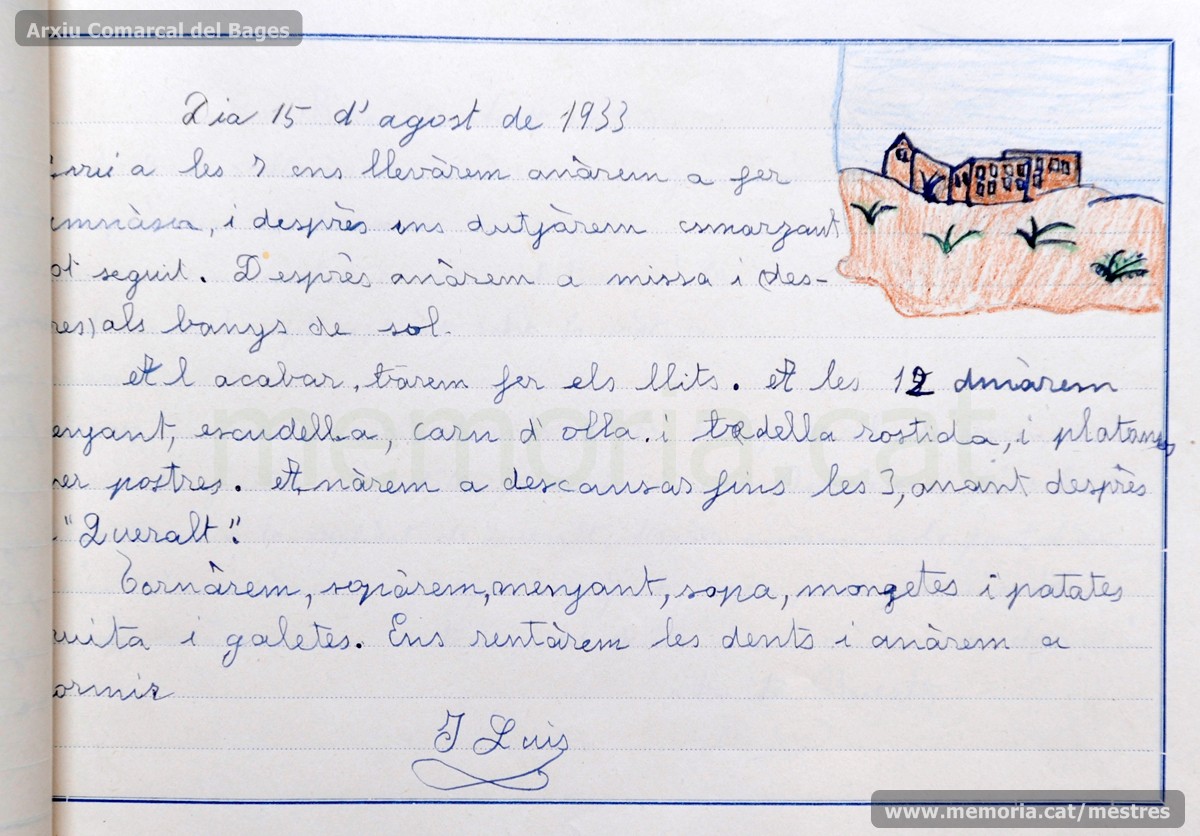 Arxiu Comarcal del Bages
Dia 15 d'agost de 1933
a les 7 ens llevàrem anàrem a fer
mnàsia, i desprès ens dutjàrem esmorzant
ot seguit. Desprès anàrem a missa i (des-
res) als banys de sol.
Al acabar, fàrem fer els llits. A les 12 dinàrem
enjant, escudella, carn d'olla i vedella rostida, i platans
er postres. Anàrem a descansar fins les 3, anant desprès
"Queralt".
Tornàrem, sopàrem, menjant, sopa, mongetes i patates
ruita i galetes. Ens rentàrem les dents i anàrem a
ormir
J Luis
memoria.cat
www.memoria.cat/mestres